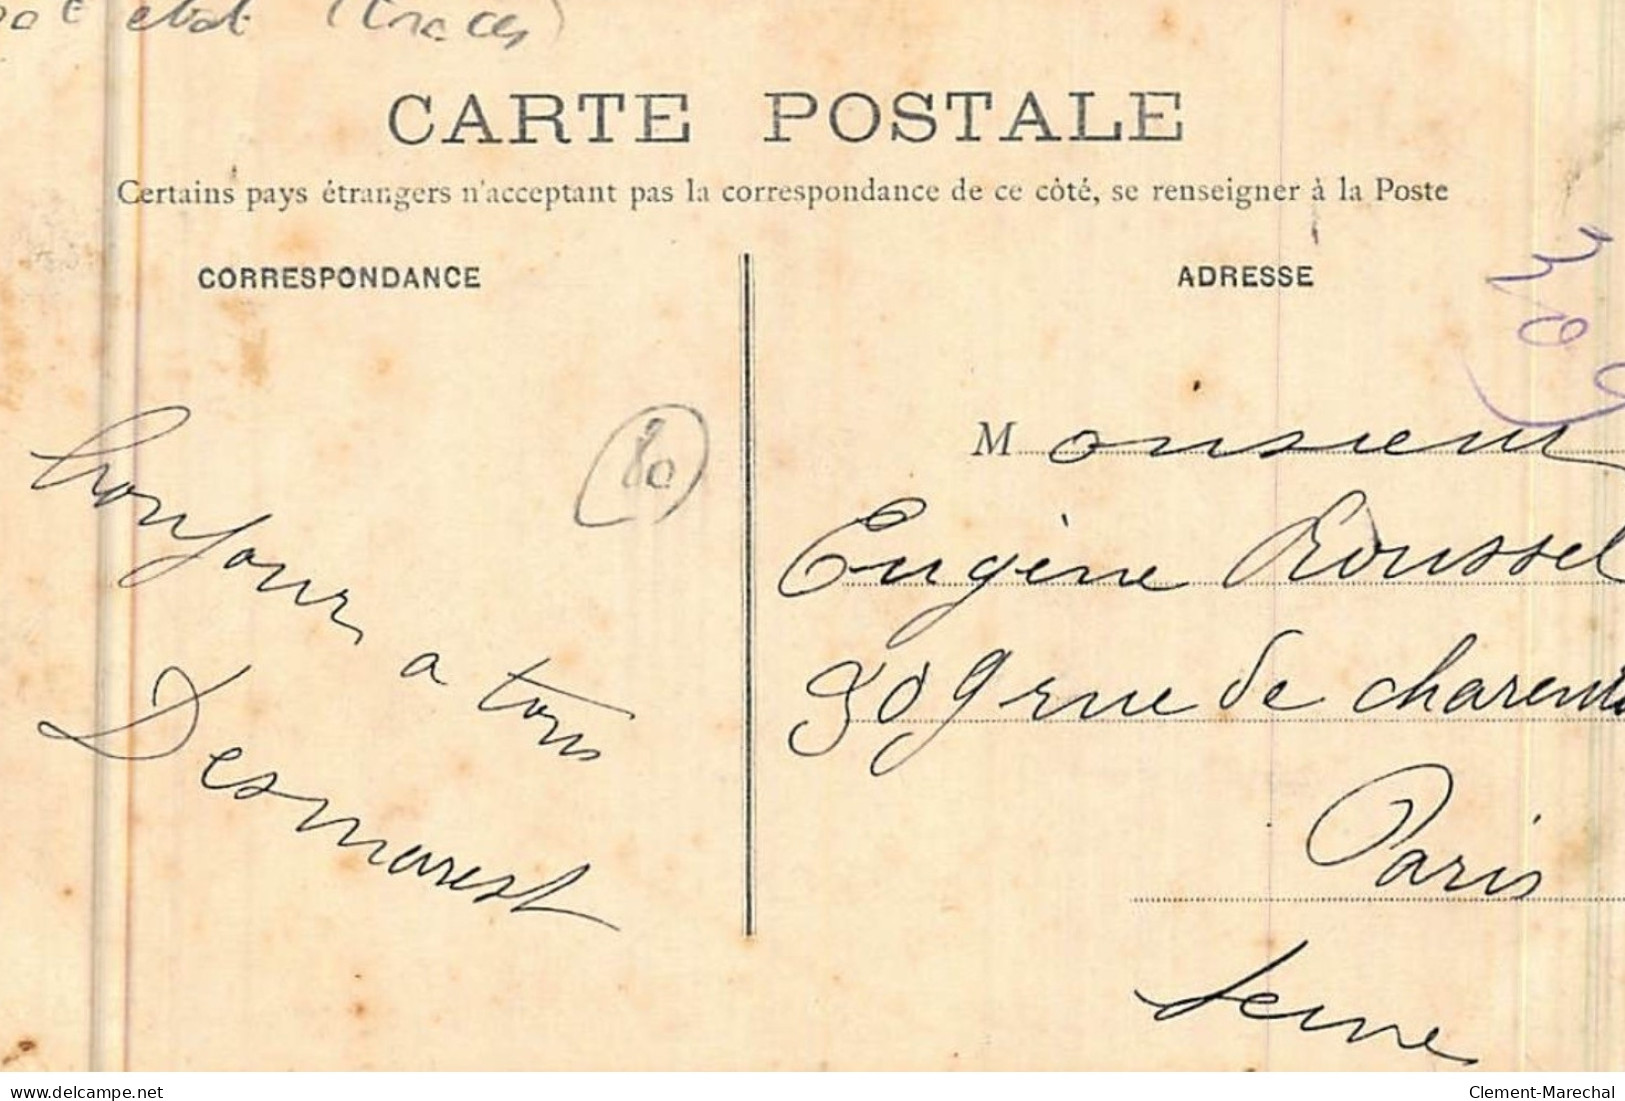 etat (traces)
CARTE POSTALE
Certains pays étrangers n'acceptant pas la correspondance de ce côté, se renseigner à la Poste
CORRESPONDANCE
bonjour a tous
Desmarest
80
ADRESSE
309
Monsieur
Eugène Roussel
309 rue de charent
Paris
Seine
delcampe.net
Clement-Marechal